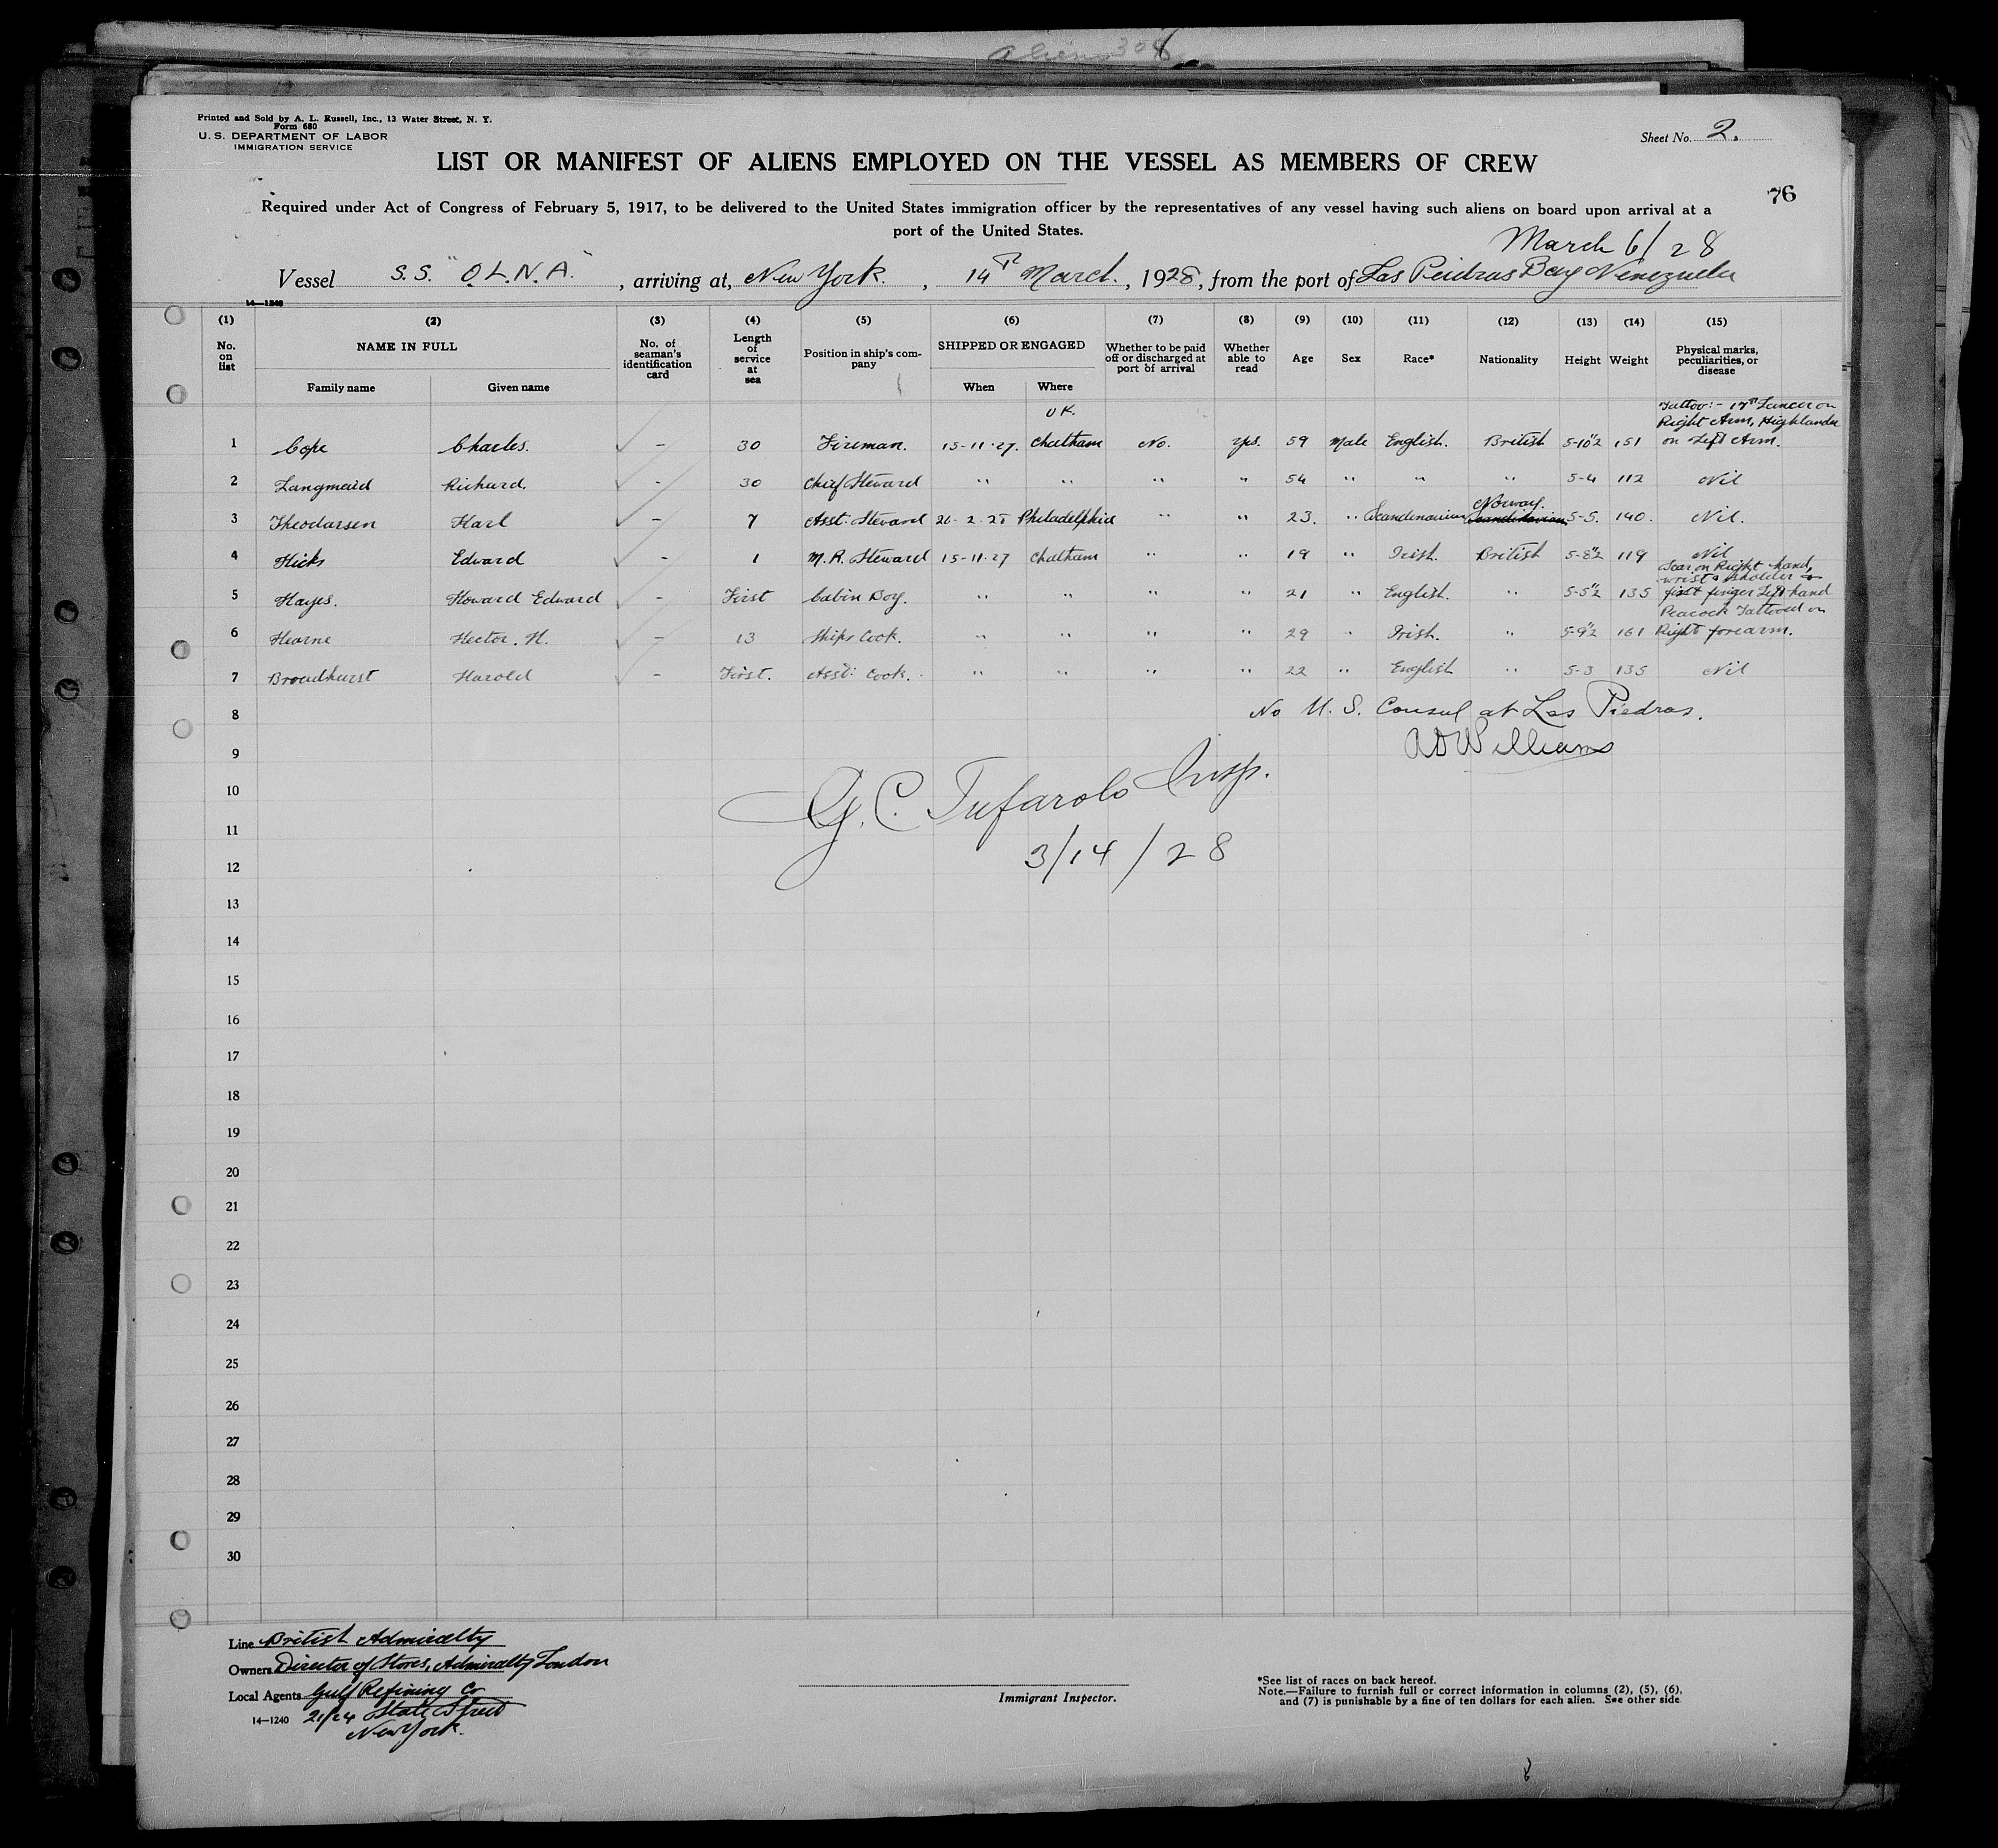 Aliens 308
Printed and Sold by A. L. Russell, Inc., 13 Water Street, N. Y.
Form 680
U. S. DEPARTMENT OF LABOR
IMMIGRATION SERVICE
Sheet No. 2.
LIST OR MANIFEST OF ALIENS EMPLOYED ON THE VESSEL AS MEMBERS OF CREW
76
Required under Act of Congress of February 5, 1917, to be delivered to the United States immigration officer by the representatives of any vessel having such aliens on board upon arrival at a
port of the United States.
March 6/28
Vessel S.S. "O.L.N.A.", arriving at, New York., 14th March., 1928, from the port of Las Peidras Bay Venezuela
14—1240
(1) (2) (3) (4) (5) (6) (7) (8) (9) (10) (11) (12) (13) (14) (15)
No. on list NAME IN FULL No. of seaman's identification card Length of service at sea Position in ship's company SHIPPED OR ENGAGED Whether to be paid off or discharged at port of arrival Whether able to read Age Sex Race* Nationality Height Weight Physical marks, peculiarities, or disease
Family name Given name When Where
U.K. Tattoo:- 17th Lancer on
Right Arm, Highlander
1 Cope Charles. - 30 Fireman. 15-11-27. Chatham No. yes. 59 Male English. British 5-10½ 151 on Left Arm.
2 Langmaid Richard. - 30 Chief Steward " " " " 54 " " " 5-4 112 Nil
Norway.
3 Theodorsen Harl - 7 Asst. Steward 26-2-28 Philadelphia " " 23. " Scandinavian Scandinavian 5-5. 140. Nil.
4 Hicks Edward - 1 M.R. Steward 15-11-27 Chatham " " 19 " Irish. British 5-8½ 119 Nil
Scar on Right hand,
wrist & sholder &
5 Hayes. Howard Edward - First Cabin Boy. " " " " 21 " English. " 5-5½ 135 first finger Left hand
Peacock Tattooed on
6 Hearne Hector. H. - 13 Ships Cook. " " " " 29 " Irish. " 5-9½ 161 Right forearm.
7 Broadhurst Harold - First. Asst. Cook. " " " " 22 " English " 5-3 135 Nil
8 No U. S. Consul at Las Piedras.
9 A D Williams
10 G. C. Tufarolo Insp.
11
12 3/14/28
13
14
15
16
17
18
19
20
21
22
23
24
25
26
27
28
29
30
Line British Admiralty
Owners Director of Stores, Admiralty London
Local Agents Gulf Refining Co
14—1240 21/24 State Street
New York.
Immigrant Inspector.
*See list of races on back hereof.
Note.—Failure to furnish full or correct information in columns (2), (5), (6),
and (7) is punishable by a fine of ten dollars for each alien. See other side